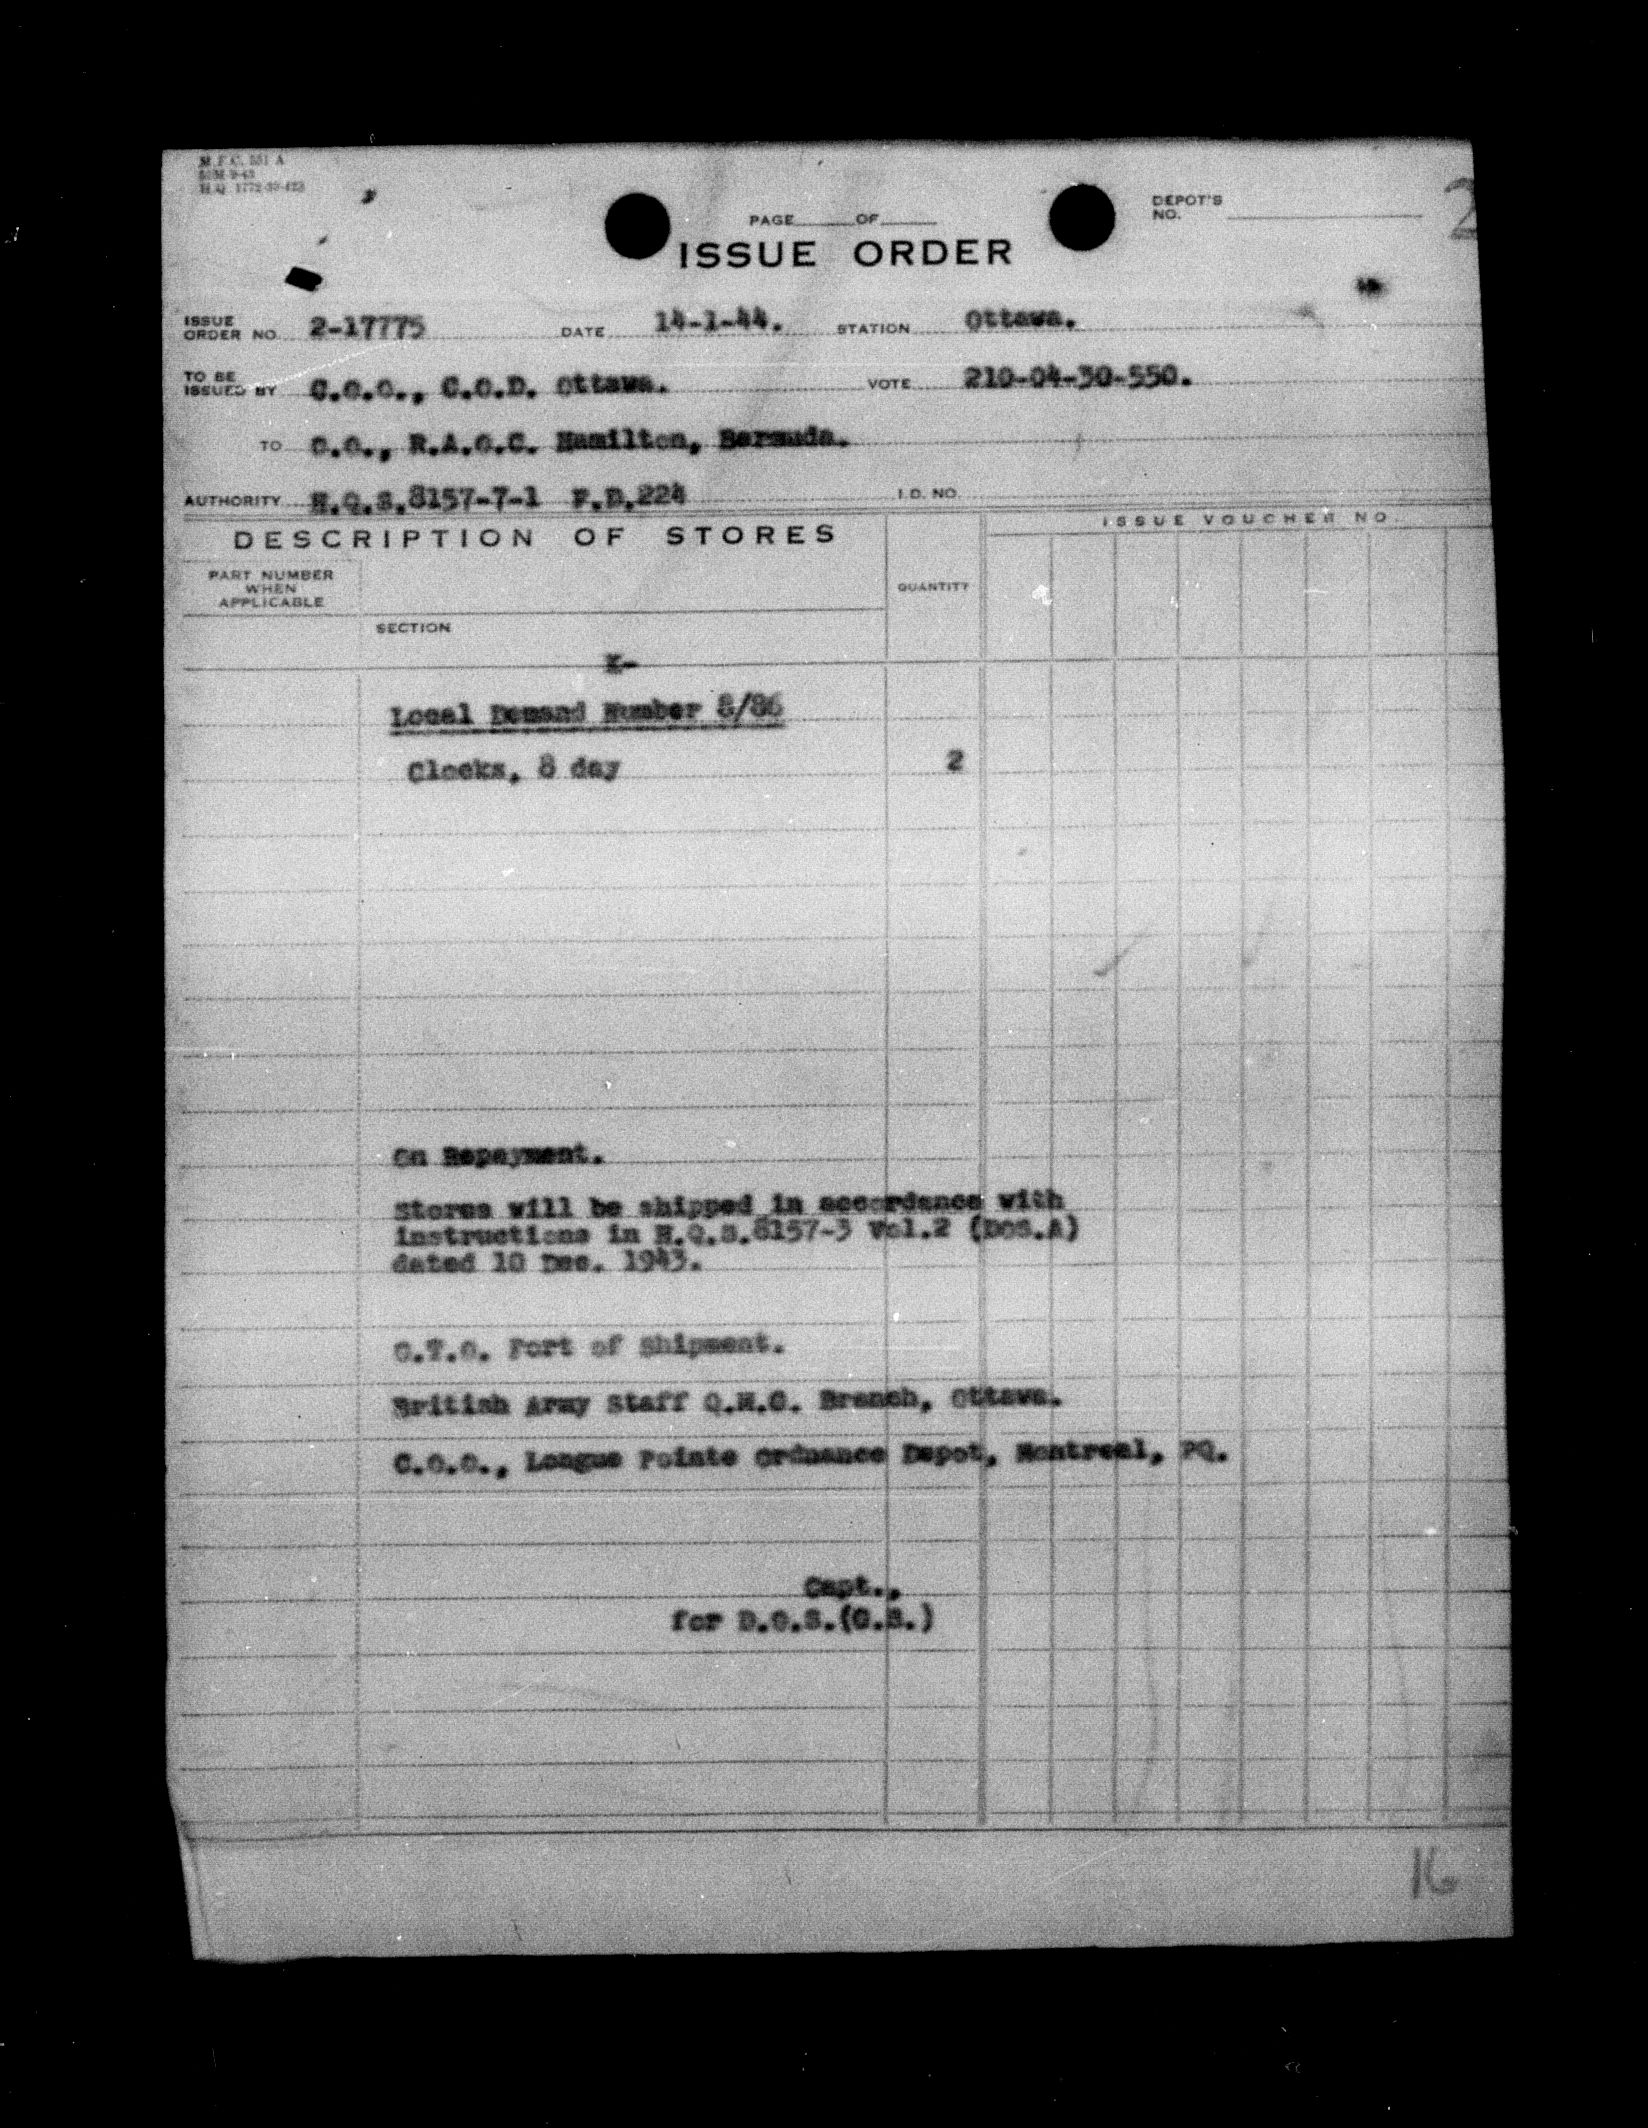 M.F.C. 551 A
50M-9-43
H.Q. 1772-39-423
DEPOT'S
NO.
2
PAGE OF
ISSUE ORDER
ISSUE
ORDER NO. 2-17775 DATE 14-1-44. STATION Ottawa.
TO BE
ISSUED BY C.O.O., C.O.D. Ottawa. VOTE 210-04-30-550.
TO O.O., R.A.O.C. Hamilton, Bermuda.
AUTHORITY H.Q.S.8157-7-1 F.D.224 I.D. NO.
DESCRIPTION OF STORES
ISSUE VOUCHER NO.
PART NUMBER
WHEN
APPLICABLE
QUANTITY
SECTION
K-
Local Demand Number 8/86
Clocks, 8 day 2
On Repayment.
Stores will be shipped in accordance with
instructions in H.Q.S.8157-3 Vol.2 (DOS.A)
dated 10 Dec. 1943.
O.T.O. Port of Shipment.
British Army Staff Q.M.G. Branch, Ottawa.
C.O.O., Longue Pointe Ordnance Depot, Montreal, PQ.
Capt.,
for D.O.S.(G.S.)
16